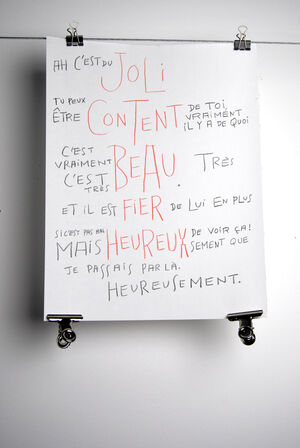 AH C'EST DU JOLI
TU PEUX ÊTRE CONTENT DE TOI, VRAIMENT IL Y A DE QUOI
C'EST VRAIMENT BEAU. TRÈS
C'EST TRÈS
ET IL EST FIER DE LUI EN PLUS
SI C'EST PAS MAL HEUREUX DE VOIR ÇA!
MAIS HEUREUSEMENT QUE
JE PASSAIS PAR LÀ.
HEUREUSEMENT.